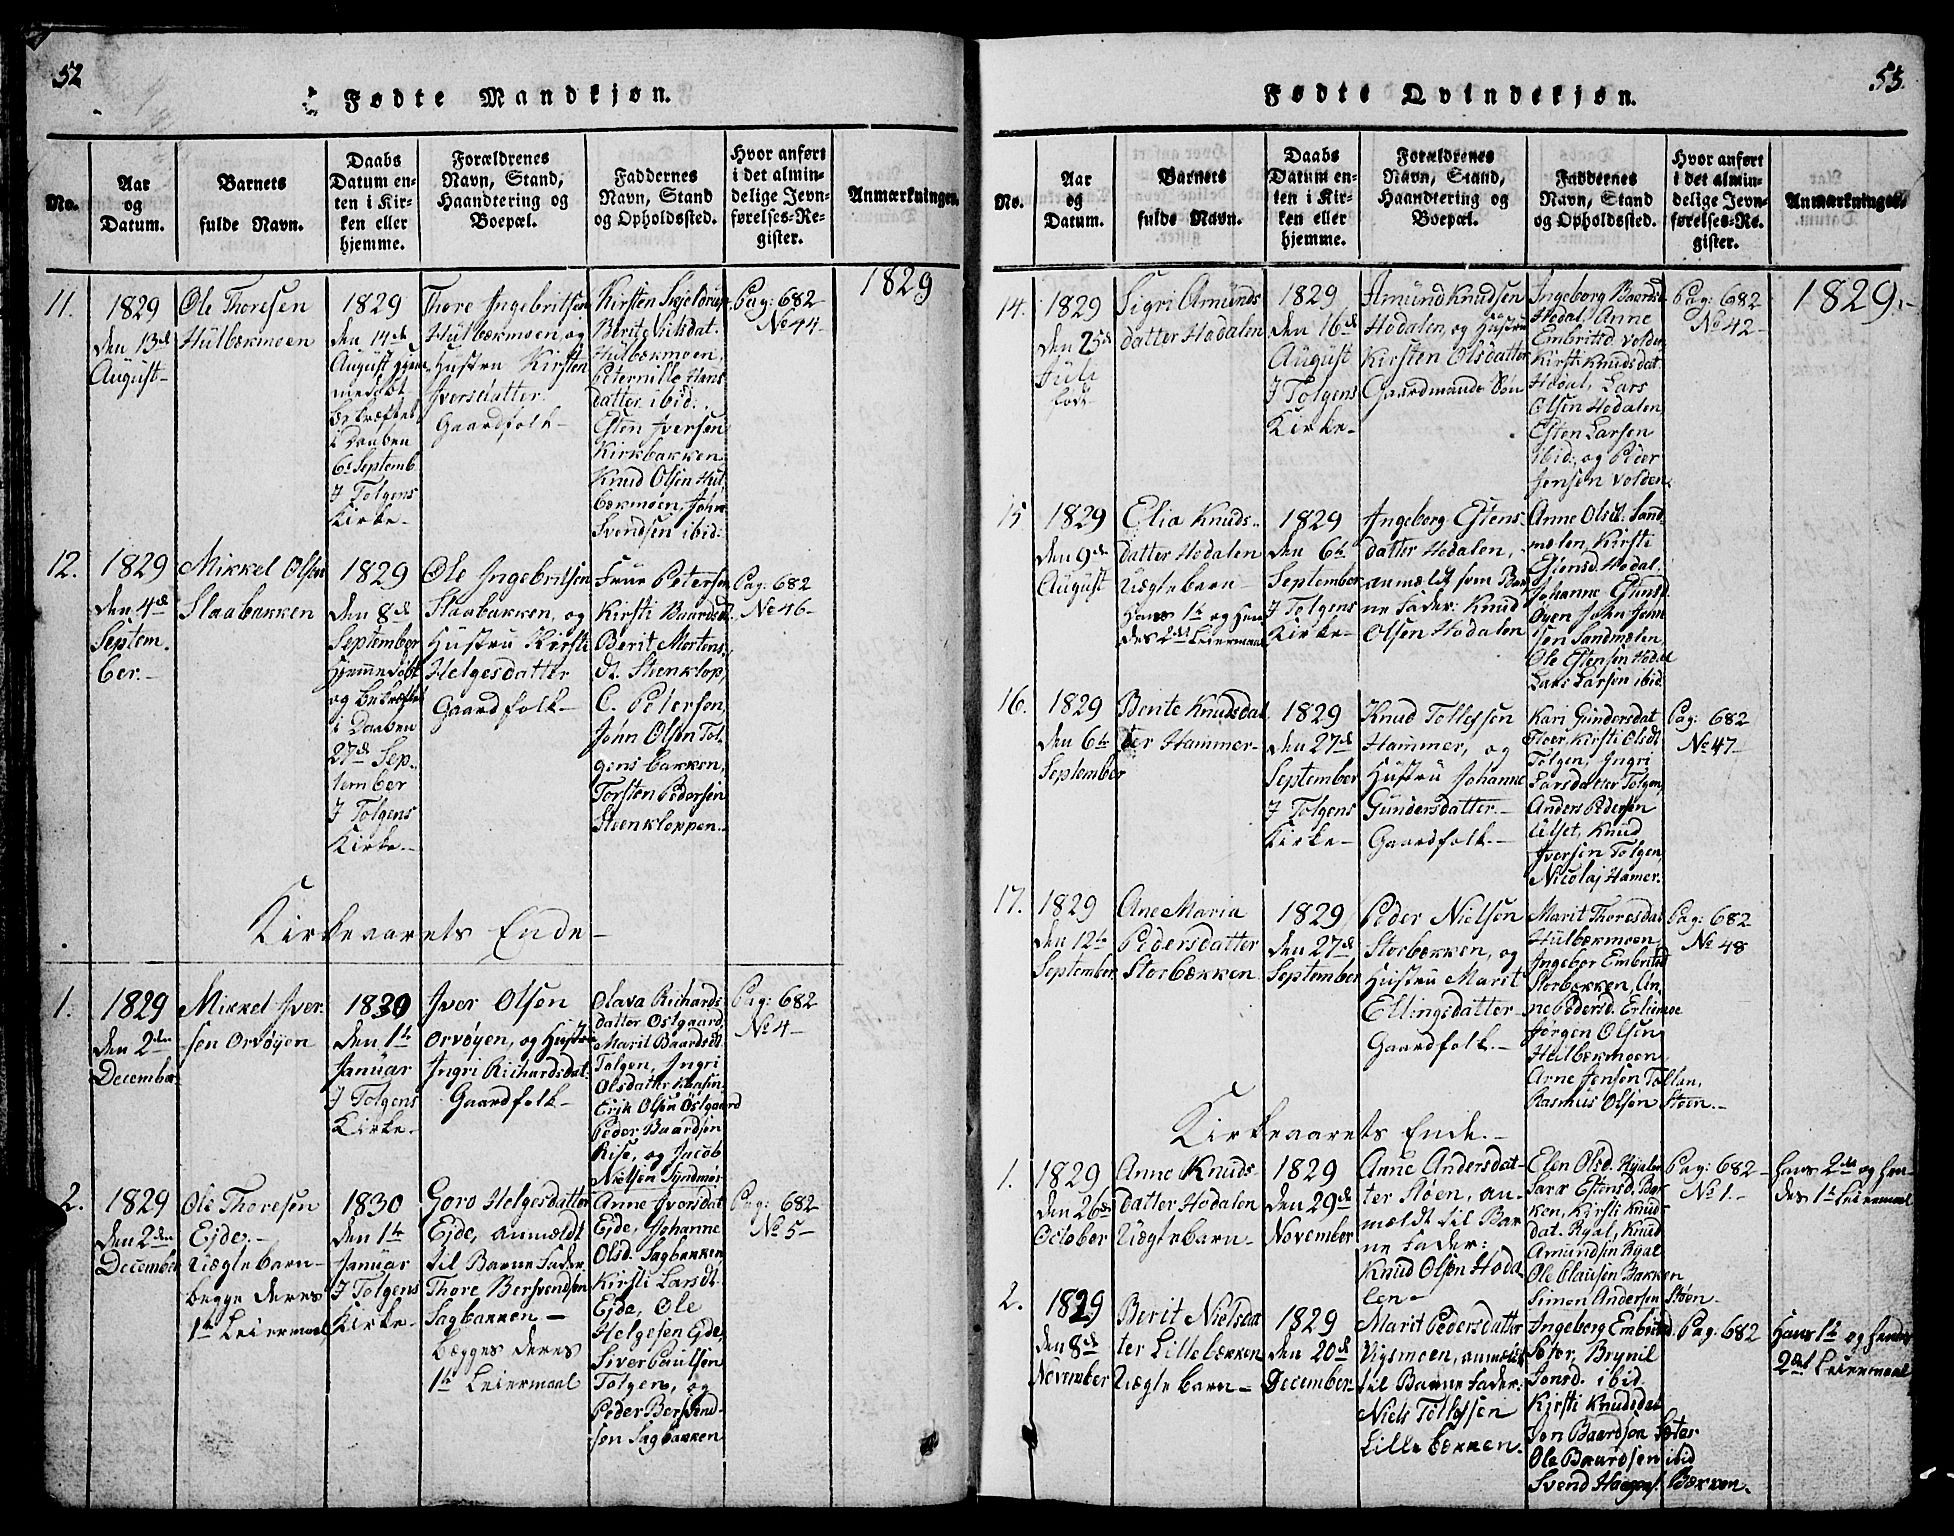 52
Fødte Mandkjøn.
No.
Aar
og
Datum.
Barnets
fulde Navn.
Daabs
Datum en-
ten i Kir-
ken eller
hjemme.
Forældrenes
Navn, Stand,
Haandtering og
Boepæl.
Faddernes
Navn, Stand
og Opholdssted.
Hvor anført
i det almin-
delige Jevn-
førelses-Re-
gister.
Anmærkninger.
1829
11.
1829
den 13de
August-
Ole Thoresen
Hulbækmoen
1829
den 14de
August hjem-
medøbt
bekræftet
i Daaben
6te Septemb
I Tolgens
Kirke-
Thore Ingebritsen
Hulbækmoen, og
Hustru Kirsten
Iversdatter.
Gaardfolk-
Kirsten Skjelbred
Berit Nielsdat.
Hulbækmoen,
Peternille Hans
datter ibid:,
Esten Iversen
Kirkbakken
Knud Olsen Hul
bækmoen, John
Svendsen ibid:
Pag: 682
No 44-
12.
1829
den 4de
Septem.
ber.-
Mikkel Olsen
Staabakken
1829
den 8de
September
hjemmedøbt
og bekræftet
i Daaben
27de Sep-
tember
I Tolgens
Kirke.-
Ole Ingebritsen
Staabakken, og
Hustru Kirsti
Helgesdatter
Gaardfolk-
Frue Petersen
Kirsti Baardsd.
Berit Mortens
dt. Steenklop,
C. Petersen,
John Olsen Tol-
gensbakken,
Torsten Pedersen
Steenkloppen.-
Pag: 682
No 46-
Kirkeaarets Ende-
1.
1829
den 2den
December
Mikkel Iver-
sen Orvøyen
1830
den 1te
Januar
I Tolgens
Kirke.-
Iver Olsen
Orvøyen, og Hustru
Ingri Richardsdat:
Gaardfolk-
Olava Richards
datter Ostgaard,
Marit Baardsdt
Tolgen, Ingri
Olsdatter Kaasen
Erik Olsen Østgaard
Peder Baardsen
Rise, og Jacob
Nielsen Syndmør
Pag: 682
No 4-
2.
1829
den 2den
December
Ole Thoresen
Eide.-
Uægtebarn-
begge deres
1te Leiermaal
1830
den 1te
Januar
I Tolgens
Kirke.-
Goro Helgesdatter
Eide, anmældt
til Barnefader
Thore Bersvendsen
Sagbakken-
begges deres
1te Leiermaal
Anne Iversdat
Eide, Johanne
Olsd. Sagbakken
Kirsti Larsdt
Eide, Ole
Helgesen Eide,
Siver Paulsen
Tolgen, og
Peder Bersvend-
sen Sagbakken
Pag: 682
No 5-
53.
Fødte Qvindekjøn.
No.
Aar
og
Datum.
Barnets
fulde Navn.
Daabs
Datum en-
ten i Kir-
ken eller
hjemme.
Forældrenes
Navn, Stand,
Haandtering og
Boepæl.
Faddernes
Navn, Stand
og Opholdssted.
Hvor anført
i det almin-
delige Jevn-
førelses-Re-
gister.
Anmærkninger.
1829.-
14.
1829
den 25de
Juli
født
Sigri Amunds
datter Hodalen
1829
den 16de
August
I Tolgens
Kirke-
Amund Knudsen
Hodalen, og Hustru
Kirsten Olsdatter
Gaardmands Søn
Ingeborg Baardsd
Hodal, Anne
Embritsd. Volden
Kirsti Knudsdat
Hodal, Lars
Olsen Hodalen,
Esten Larsen
ibid:, og Peder
Jensen Volden.
Pag: 682
No 42-
15
1829
den 9de
August
Elia Knuds-
datter Hodalen
Uægtebarn-
Hans 1te og Hen
des 2det Leiermaal
1829
den 6te
September
I Tolgens
Kirke-
Ingeborg Estens-
datter Hodalen,
anmældt som Bar
ne Fader: Knud
Olsen Hodalen
Anne Olsd. Sand
mælen, Kirsti
Estensd. Hodal
Johanne
Øyen John John
sen Sandmælen
Ole Estensen Hodal
Lars Larsen ibid
16.
1829
den 6te
September
Berite Knudsdat
ter Hammer-
1829
den 27de
September
I Tolgens
Kirke-
Knud Tollefsen
Hammer, og
Hustru Johanne
Gundersdatter-
Gaardfolk.-
Kari Gundersdat
Kirsti Olsdt
Tolgen, Ingri
Larsdatter Tolgen,
Anders Pedersen
Ulset, Knud
Iversen Tolgen,
Nicolaj Hamer.
Pag: 682
No 47-
17.
1829
den 12te
September
Ane Maria
Pedersdatter
Storbækken
1829
den 27de
September
Peder Nielsen
Storbækken, og
Hustru Marit
Ellingsdatter-
Gaardfolk.-
Marit Thoresdat
Hulbækmoen,
Ingebor Embritsd
Storbækken, An-
ne Pedersd. Erlismoe
Jørgen Olsen
Hulbækmoen
Arne Jensen Tollan,
Rasmus Olsen Steen.-
Pag: 682
No 48
Kirkeaarets Ende.-
1.
1829
den 26de
October
Anne Knuds-
datter Hodalen
Uægtebarn-
1829
den 29de
November
Anne Andersdat-
ter Støen, an-
mældt til Bar
ne Fader:
Knud Olsen Hoda
len-
Elen Olsd. Ryalen
Sara Estensd. Bak
ken, Kirsti Knud-
dat. Ryal, Knud
Amundsen Ryal
Ole Clausen Bakken
Simen Andersen Støen-
Pag: 682-
No 1.-
Hans 2det og Hen
des 1te Leiermaal
2.
1829
den 8de
November
Berit Nielsdat
ter Lillebækken
Uægtebarn-
1829
den 20de
December-
Marit Pedersdatter
Vigsmoen, anmældt
til Barne Fader:
Niels Tollefsen
Lillebækken.
Ingeborg Embritsd.
Sæter, Brynil
Jonsd. ibid
Kirsti Knudsdat
Jon Baardsen Sæter
Ole Baardsen ibid
Svend Haagens. Bækken.
Pag: 682
Hans 1te og Hendes
2det Leiermaal